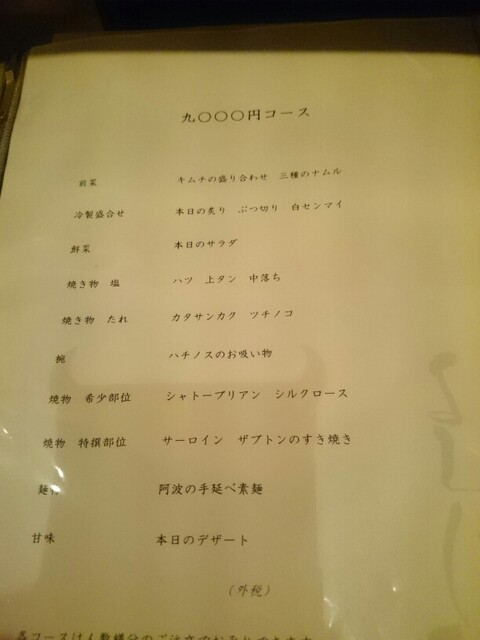 九〇〇〇円コース
前菜 キムチの盛り合わせ 三種のナムル
冷製盛合せ 本日の炙り ぶつ切り 白センマイ
鮮菜 本日のサラダ
焼き物 塩 ハツ 上タン 中落ち
焼き物 たれ カタサンカク ツチノコ
椀 ハチノスのお吸い物
焼物 希少部位 シャトーブリアン シルクロース
焼物 特撰部位 サーロイン ザブトンのすき焼き
麺 阿波の手延べ素麺
甘味 本日のデザート
(外税)
各コースは人数様分のご注文でお